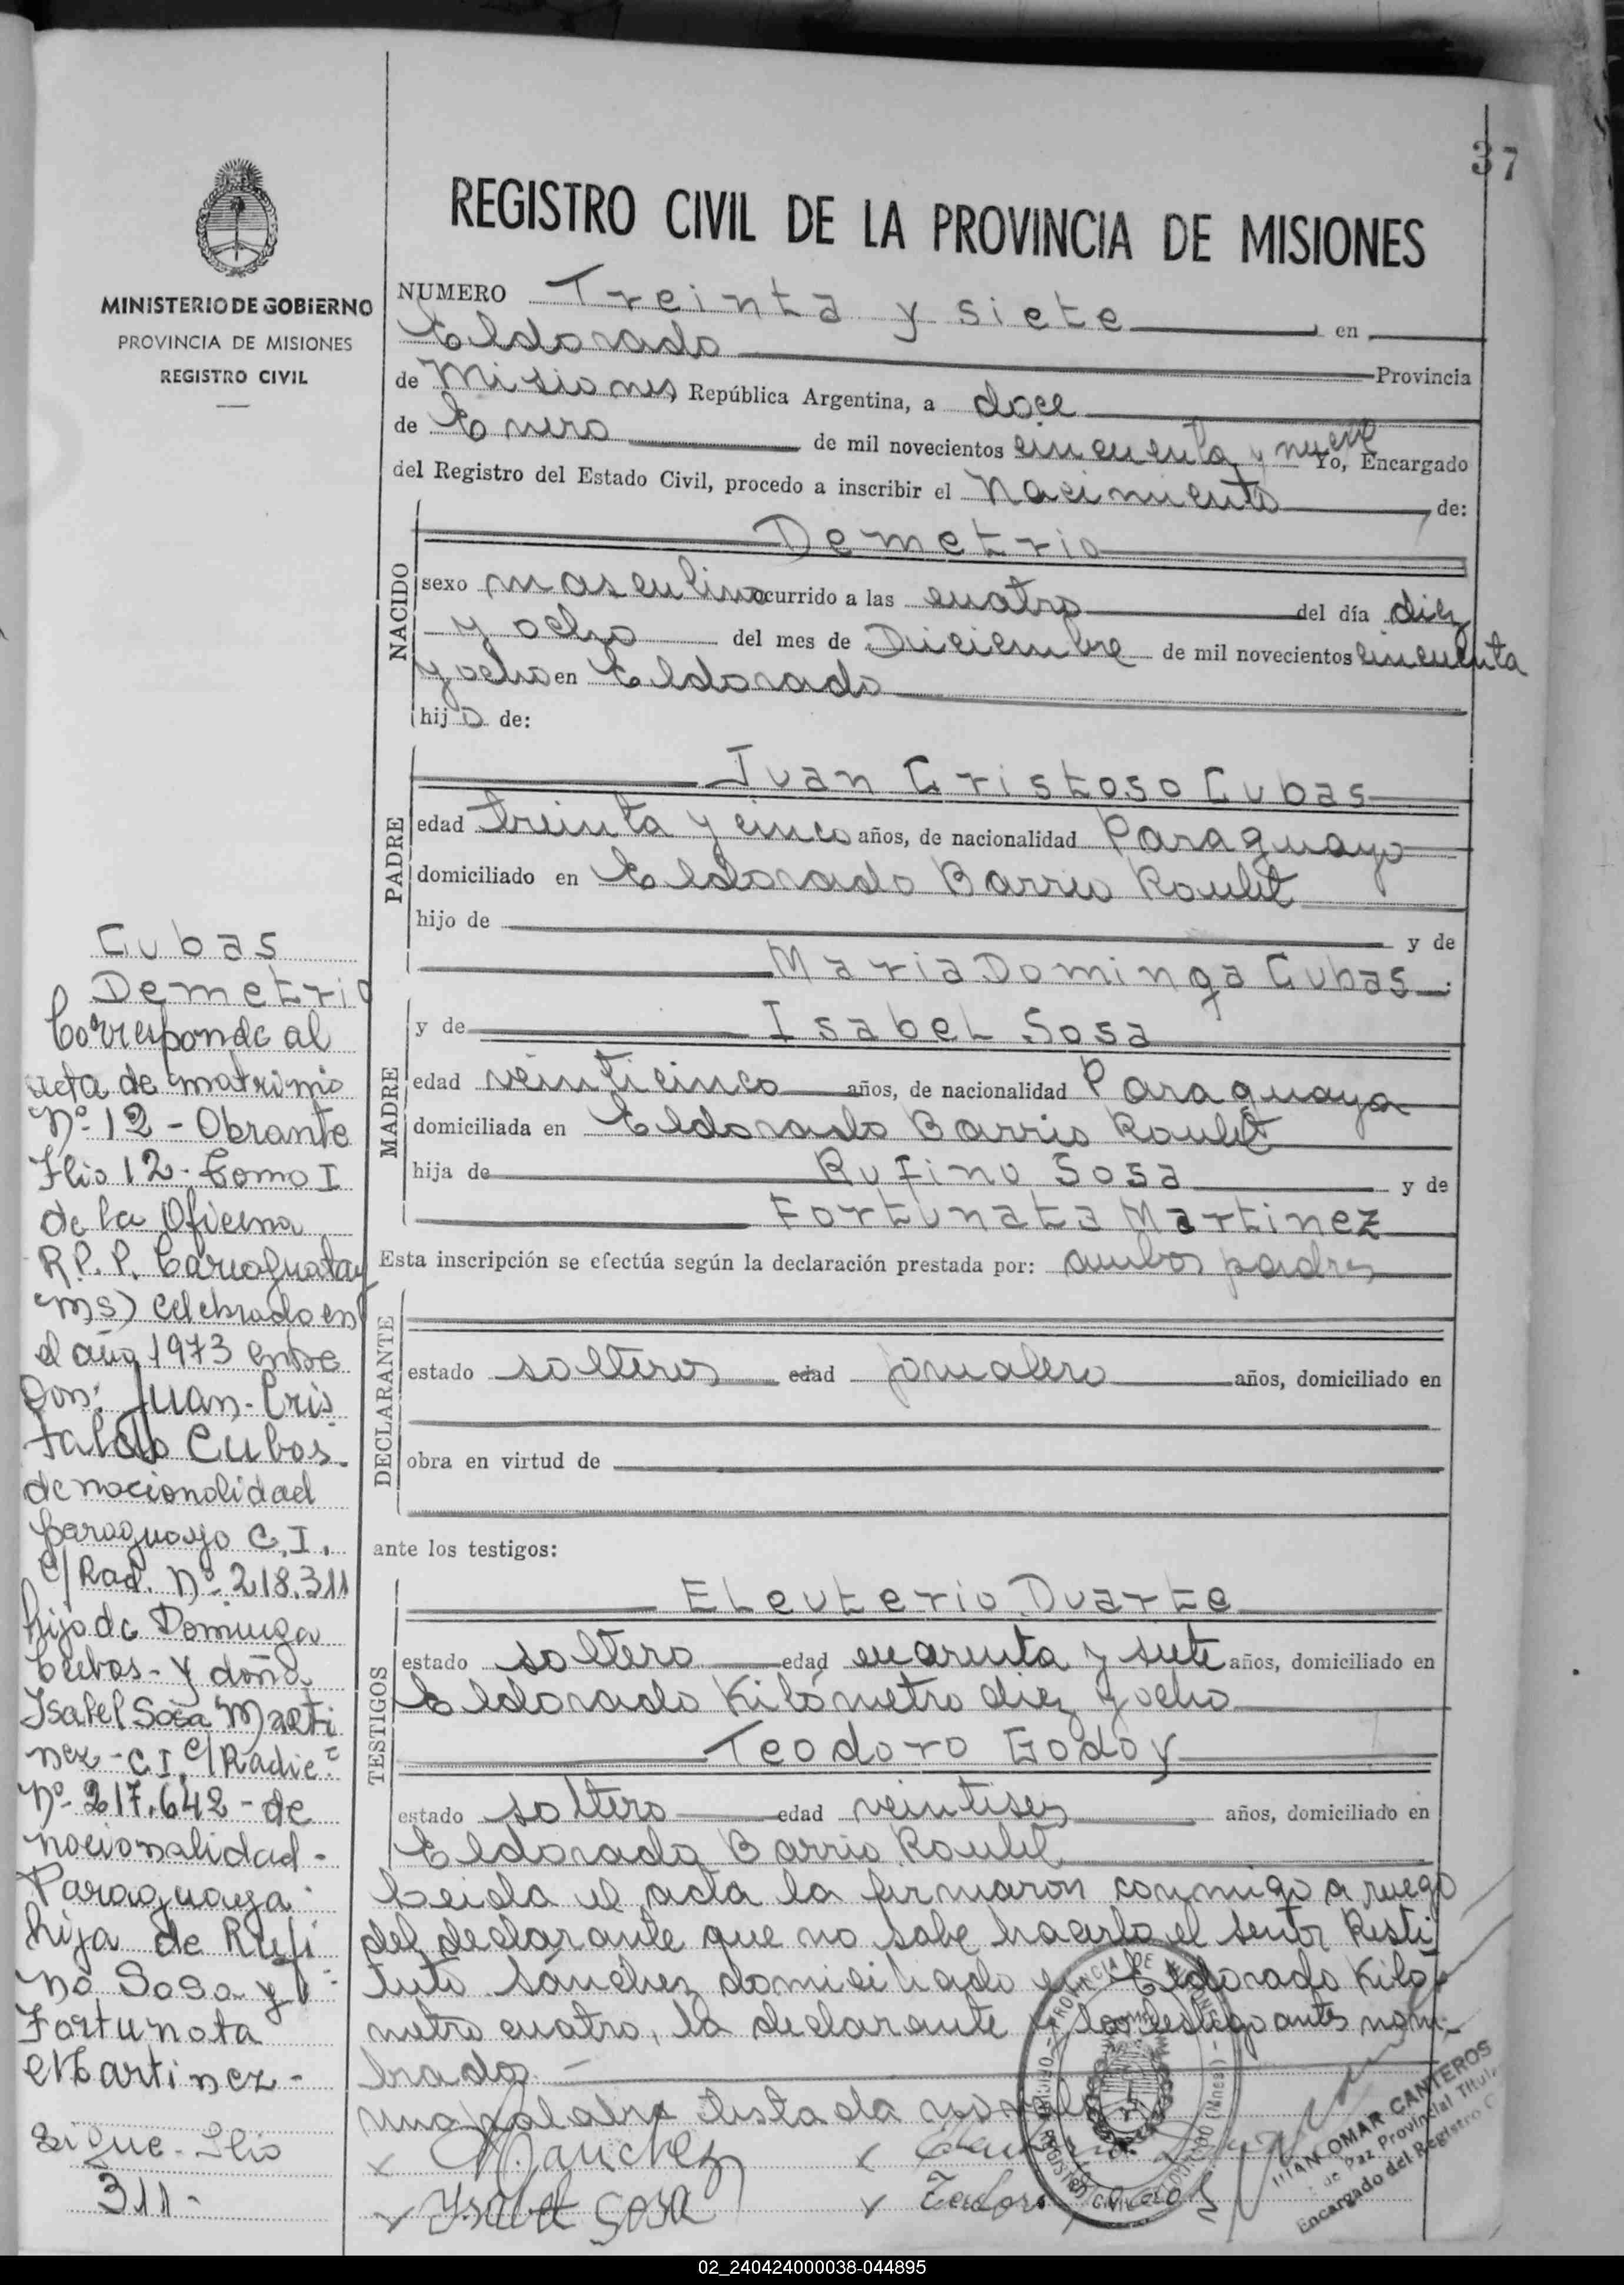 37
REGISTRO CIVIL DE LA PROVINCIA DE MISIONES
MINISTERIO DE GOBIERNO
PROVINCIA DE MISIONES
REGISTRO CIVIL
NUMERO Treinta y siete en
Eldorado Provincia
de Misiones, República Argentina, a doce
de Enero de mil novecientos cincuenta y nueve Yo, Encargado
del Registro del Estado Civil, procedo a inscribir el Nacimiento de:
NACIDO
Demetrio
sexo masculino ocurrido a las cuatro del día diez
y ocho del mes de Diciembre de mil novecientos cincuenta
y ocho en Eldorado
hijo de:
PADRE
Juan Cristoso Cubas
edad treinta y cinco años, de nacionalidad Paraguayo
domiciliado en Eldorado Barrio Roulet
hijo de y de
Maria Dominga Cubas
MADRE
y de Isabel Sosa
edad veinticinco años, de nacionalidad Paraguaya
domiciliada en Eldorado Barrio Roulet
hija de Rufino Sosa y de
Fortunata Martinez
Esta inscripción se efectúa según la declaración prestada por: ambos padres
DECLARANTE
estado solteros edad jornalero años, domiciliado en
obra en virtud de
ante los testigos:
TESTIGOS
Eleuterio Duarte
estado soltero edad cuarenta y siete años, domiciliado en
Eldorado Kilómetro diez y ocho
Teodoro Godoy
estado soltero edad veintiseis años, domiciliado en
Eldorado Barrio Roulet
Leida el acta la firmaron conmigo a ruego
del declarante que no sabe hacerlo el señor Resti
tuto Sánchez domiciliado en Eldorado Kiló
metro cuatro, la declarante y los testigo antes nom-
brados
una palabra testada no vale
Sanchez
Isabel Sosa
Teodoro
PROVINCIA DE MISIONES
JUAN OMAR CANTEROS
de Paz Provincial Titular
Encargado del Registro C
Cubas
Demetrio
Corresponde al
acta de matrimio
Nº 12 - Obrante
Flio 12 - Tomo I
de la Oficina
R.P.P. Caraguatay
(ms) celebrado en
el año 1973 entre
Don: Juan - Cris
taldo Cubas.
de nacionalidad
paraguayo C.I.
c/Rad. Nº 218.311
hijo de Dominga
Cubas - y doña
Isabel Sosa Marti
nez - C.I. c/Radic.
Nº 217.642 - de
nacionalidad -
Paraguaya
hija de Rufi
no Sosa y
Fortunata
Martinez -
Sigue - Flio
311 -
02_240424000038-044895